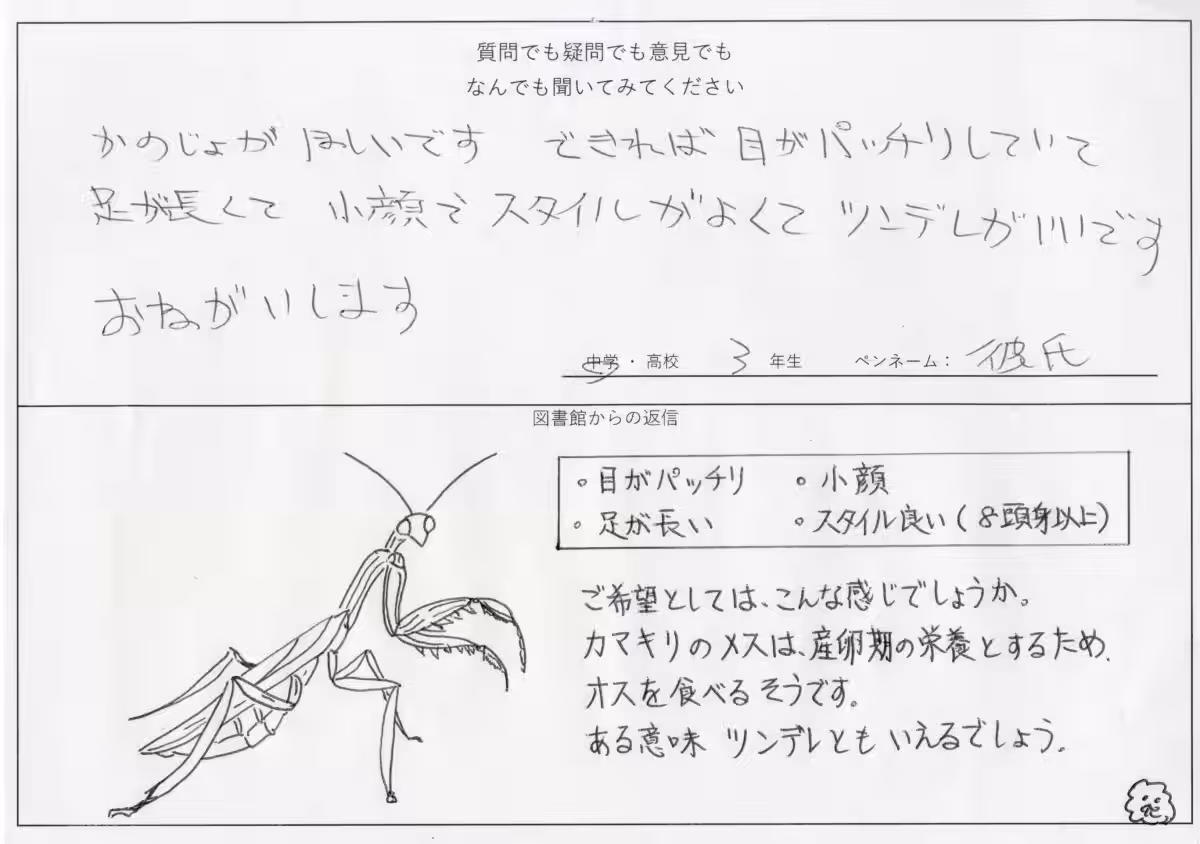 質問でも疑問でも意見でも
なんでも聞いてみてください
かのじょが ほしいです できれば 目がパッチリしていて
足が長くて 小顔で スタイルがよくて ツンデレがいいです
おねがいします
中学・高校 3 年生 ペンネーム： 彼氏
図書館からの返信
。目がパッチリ 。小顔
。足が長い 。スタイル良い(8頭身以上)
ご希望としては、こんな感じでしょうか。
カマキリのメスは、産卵期の栄養とするため、
オスを食べるそうです。
ある意味 ツンデレとも いえるでしょう。